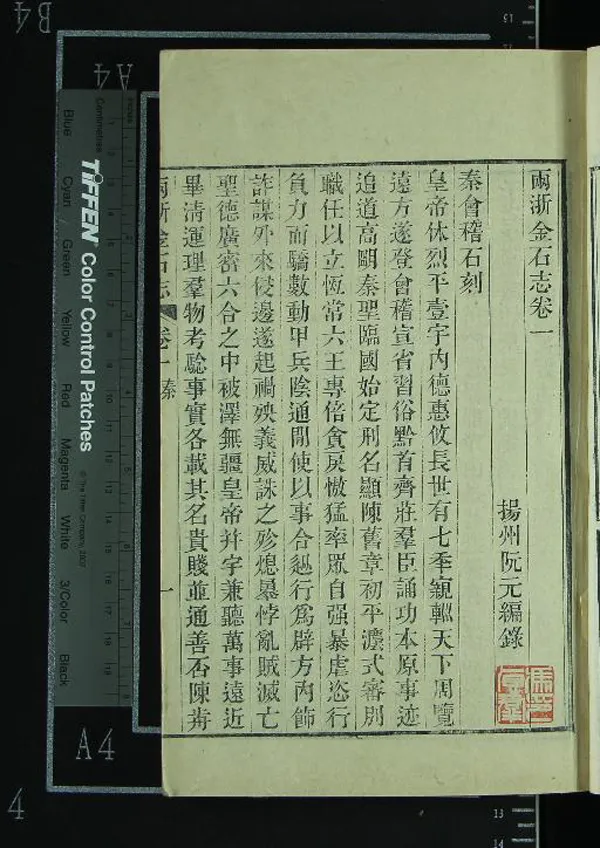 兩浙金石志卷一
揚州阮元編錄
秦會稽石刻
皇帝休烈平壹宇內德惠攸長世有七季窺輒天下周覽
遠方遂登會稽宣省習俗黔首齊莊羣臣誦功本原事迹
追道高朙秦聖臨國始定刑名顯陳舊章初平灋式審別
職任以立恆常六王專倍貪戾慠猛率眾自强暴虐恣行
負力而驕數動甲兵陰通閒使以事合從行爲辟方內飾
詐謀外來侵邊遂起禍殃義威誅之殄熄暴悖亂賊滅亡
聖德廣密六合之中被澤無疆皇帝并宇兼聽萬事遠近
畢清運理羣物考驗事實各載其名貴賤並通善否陳歬
兩浙金石志
卷一
秦
一
B4
A4
TIFFEN Color Control Patches
© The Tiffen Company, 2007
Centimetres
Inches
Blue
Cyan
Green
Yellow
Red
Magenta
White
3/Color
Black
A4
4
15
13
14